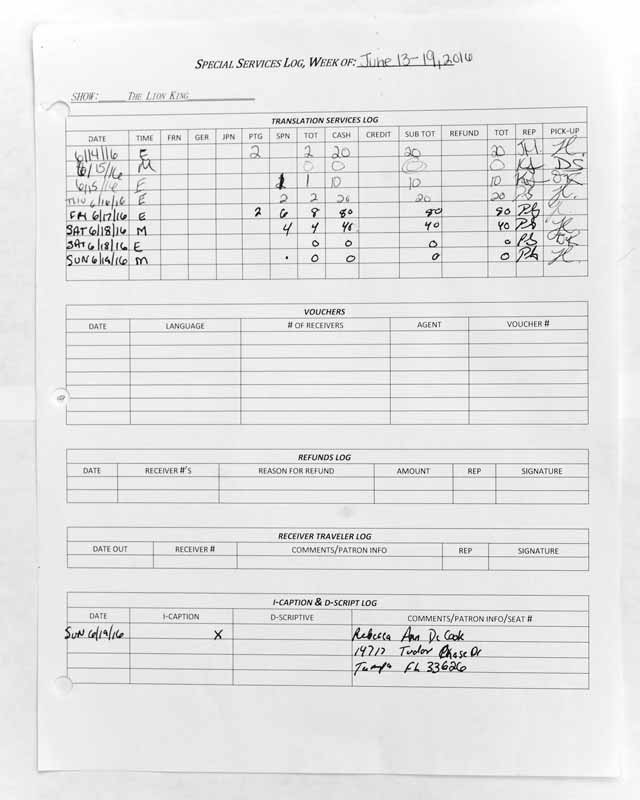 SPECIAL SERVICES LOG, WEEK OF: June 13-19, 2016
SHOW: THE LION KING
TRANSLATION SERVICES LOG
DATE TIME FRN GER JPN PTG SPN TOT CASH CREDIT SUB TOT REFUND TOT REP PICK-UP
6/14/16 E 2 2 20 20 20 JM
6/15/16 M 0 0 0 0 KA DS
6/15/16 E 1 1 10 10 10
THU 6/16/16 E 2 2 20 20 20 PB
FRI 6/17/16 E 2 6 8 80 80 80 PB
SAT 6/18/16 M 4 4 40 40 40 PB
SAT 6/18/16 E 0 0 0 0 PB
SUN 6/19/16 M 0 0 0 0 PB
VOUCHERS
DATE LANGUAGE # OF RECEIVERS AGENT VOUCHER #
REFUNDS LOG
DATE RECEIVER #'S REASON FOR REFUND AMOUNT REP SIGNATURE
RECEIVER TRAVELER LOG
DATE OUT RECEIVER # COMMENTS/PATRON INFO REP SIGNATURE
I-CAPTION & D-SCRIPT LOG
DATE I-CAPTION D-SCRIPTIVE COMMENTS/PATRON INFO/SEAT #
SUN 6/19/16 X Rebecca Ann De Cook
14717 Tudor Chase Dr
Tampa FL 33626